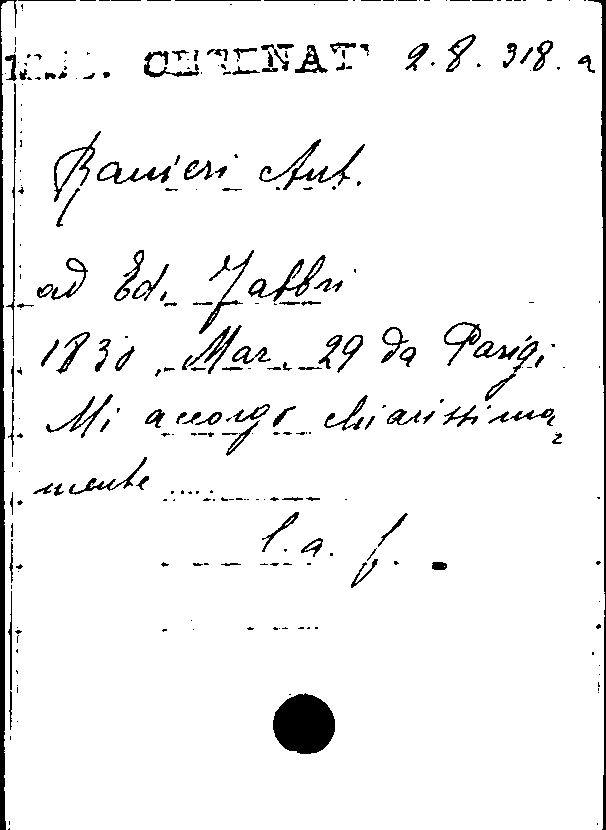 2.8.318.a
Ranieri Ant.
ad Ed. Fabbri
1830, Mar. 29 da Parigi
Mi accorgo chiarissima
mente .....
l. a. f. -